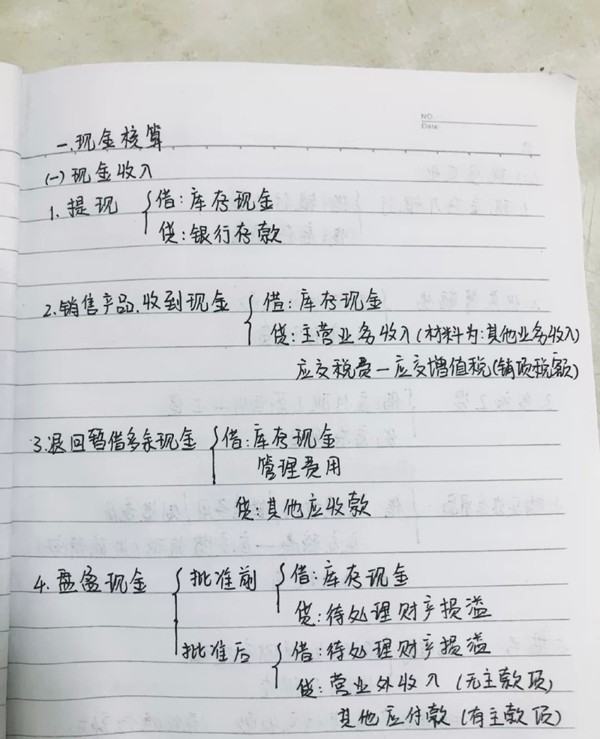 NO.
Date
一、现金核算
(一)现金收入
1. 提现 { 借:库存现金
贷:银行存款
2.销售产品,收到现金 { 借:库存现金
贷:主营业务收入(材料为:其他业务收入)
应交税费—应交增值税(销项税额)
3.退回暂借多余现金 { 借:库存现金
管理费用
贷:其他应收款
4.盘盈现金 { 批准前 { 借:库存现金
贷:待处理财产损溢
批准后 { 借:待处理财产损溢
贷:营业外收入(无主款项)
其他应付款(有主款项)